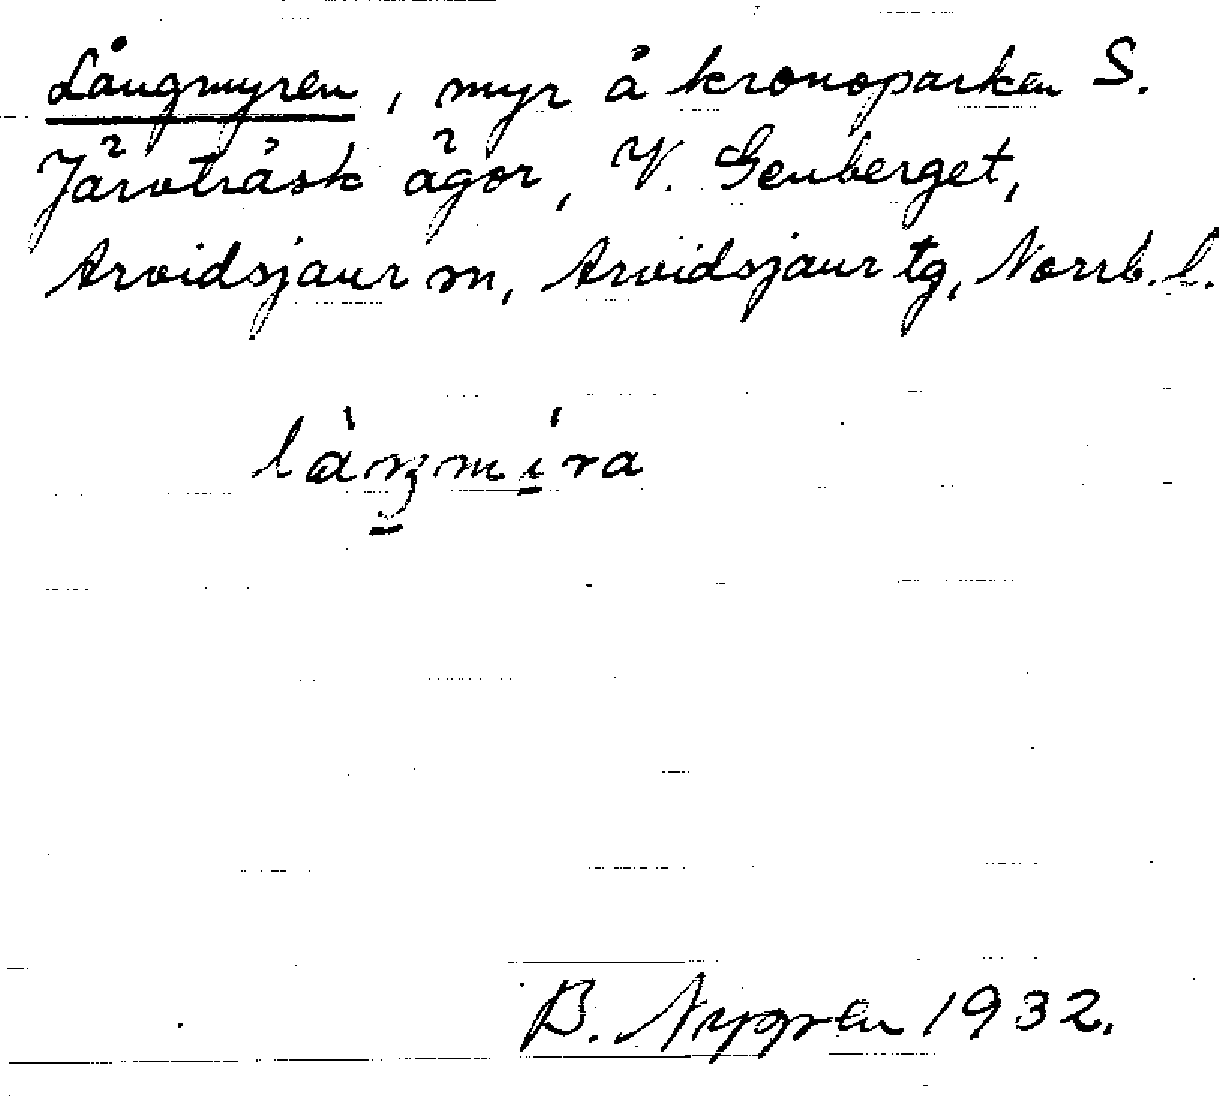 Långmyren, myr å kronoparken S.
Järvträsk ägor, V. Genberget,
Arvidsjaur sn, Arvidsjaur tg, Norrb. l.
B. Nygren 1932.